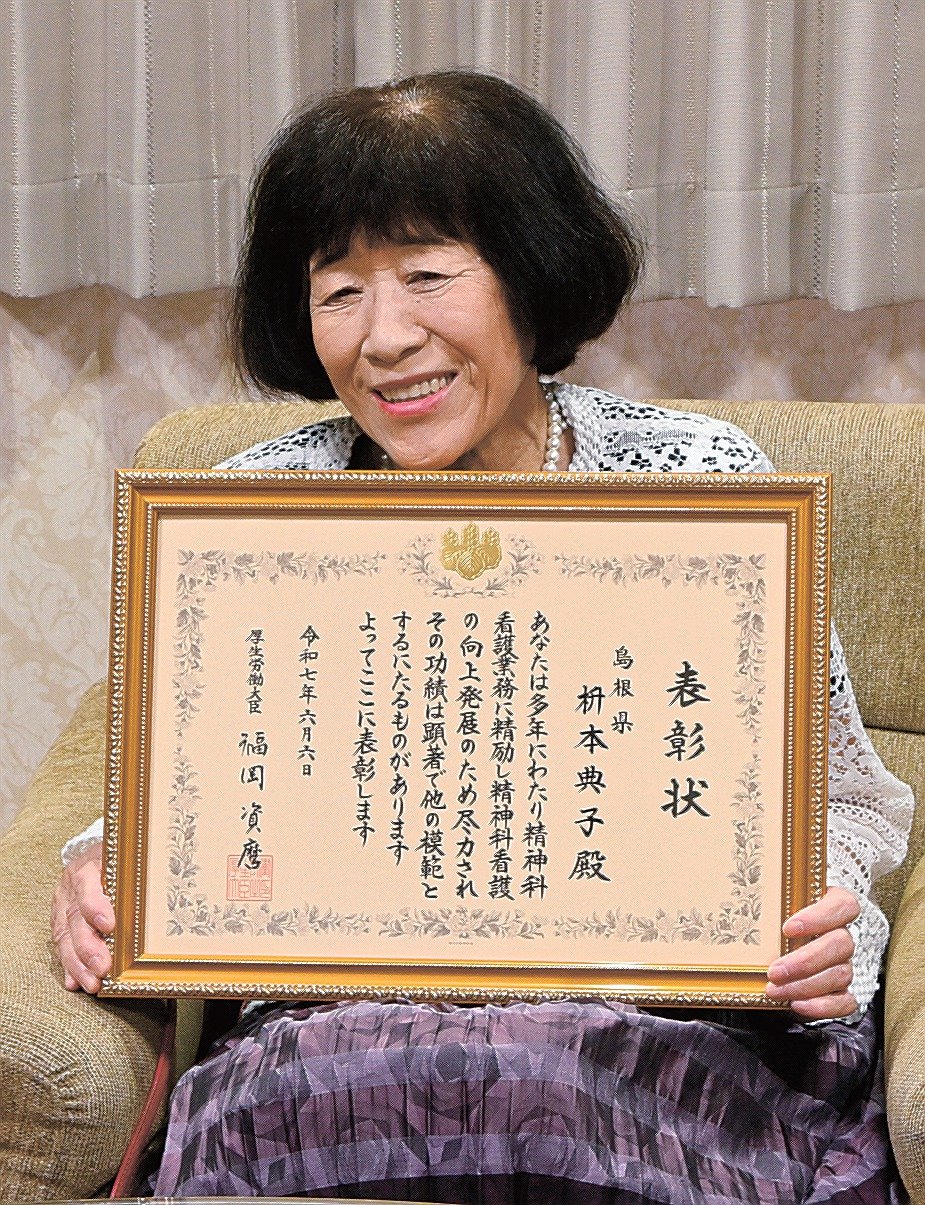 表彰状
島根県
枡本典子殿
あなたは多年にわたり精神科
看護業務に精励し精神科看護
の向上発展のため尽力され
その功績は顕著で他の模範と
するにたるものがあります
よってここに表彰します
令和七年六月六日
厚生労働大臣
福岡資麿